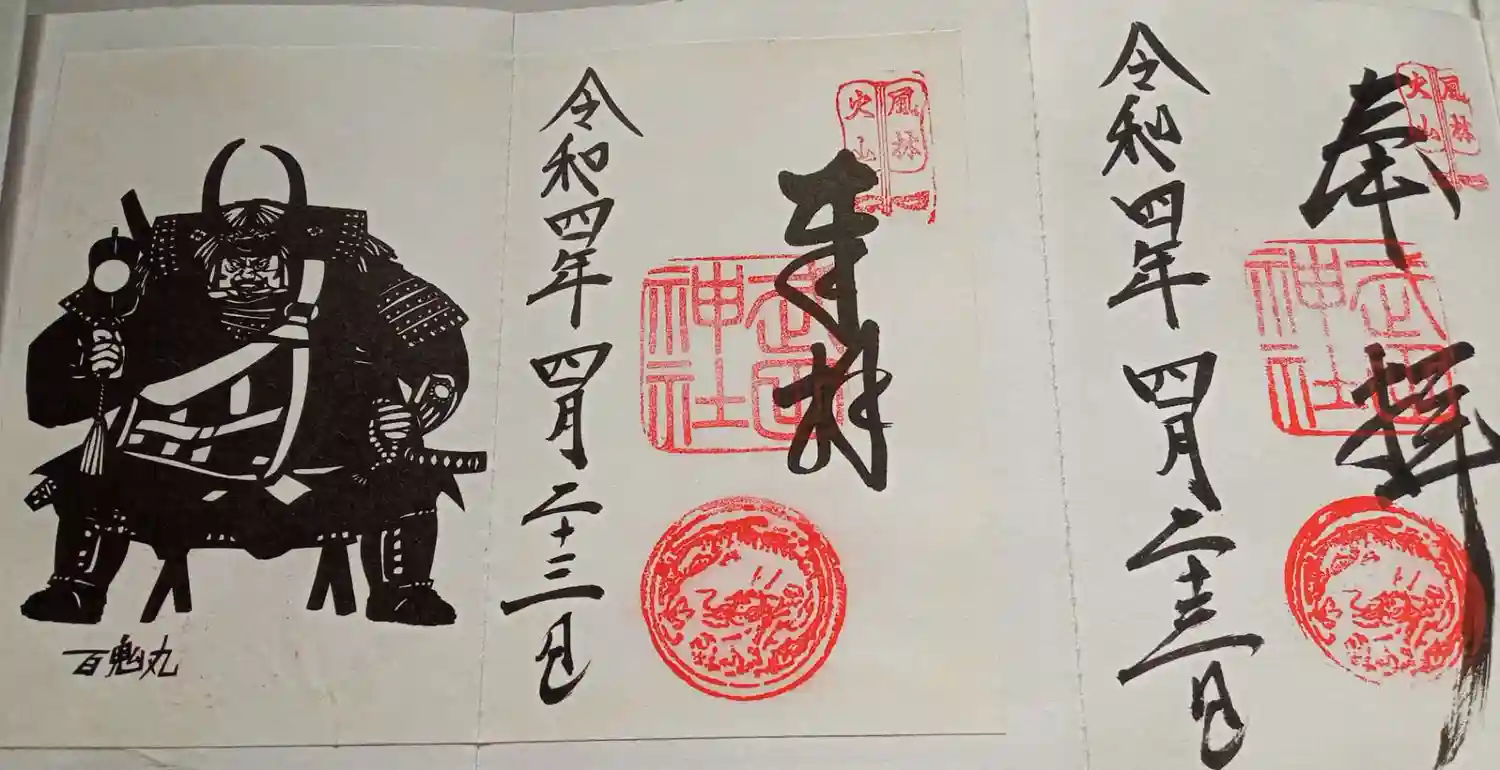 奉拝
風林
火山
武田
神社
令和四年四月二十三日
奉拝
風林
火山
武田
神社
令和四年四月二十三日
百鬼丸